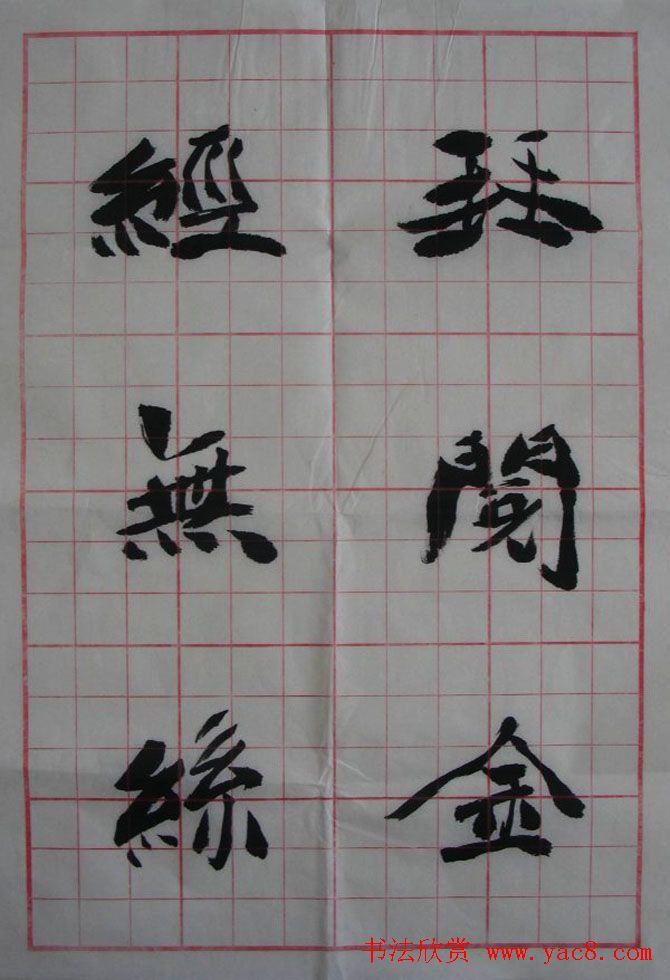 琴閱金
經無絲
书法欣赏 www.yac8.com